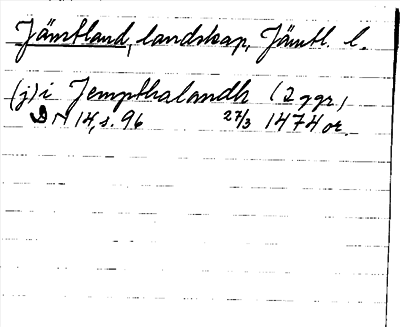 Jämtland, landskap, Jämtl. l.
(j) i Jempthalandh (2 ggr)
DN 14, s. 96 27/3 1474 or.